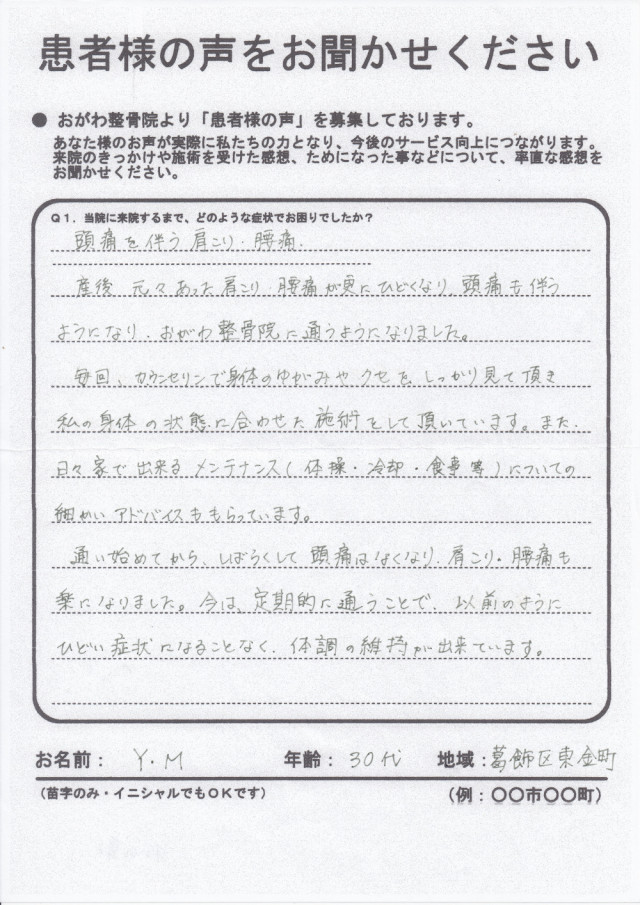 患者様の声をお聞かせください
● おがわ整骨院より「患者様の声」を募集しております。
あなた様のお声が実際に私たちの力となり、今後のサービス向上につながります。
来院のきっかけや施術を受けた感想、ためになった事などについて、率直な感想を
お聞かせください。
Q1. 当院に来院するまで、どのような症状でお困りでしたか？
頭痛を伴う肩こり・腰痛.
産後 元々あった肩こり・腰痛が更にひどくなり、頭痛も伴う
ようになり、おがわ整骨院に通うようになりました。
毎回、カウンセリンで身体のゆがみや クセを しっかり見て頂き
私の身体の状態に合わせた施術をして頂いています。また、
日々家で出来るメンテナンス(体操・冷却・食事等)についての
細かいアドバイスももらっています。
通い始めてから、しばらくして頭痛はなくなり、肩こり・腰痛も
楽になりました。今は、定期的に通うことで、以前のように
ひどい症状になることなく、体調の維持が出来ています。
お名前： Y.M 年齢： 30代 地域：葛飾区東金町
(苗字のみ・イニシャルでもOKです) (例：○○市○○町)